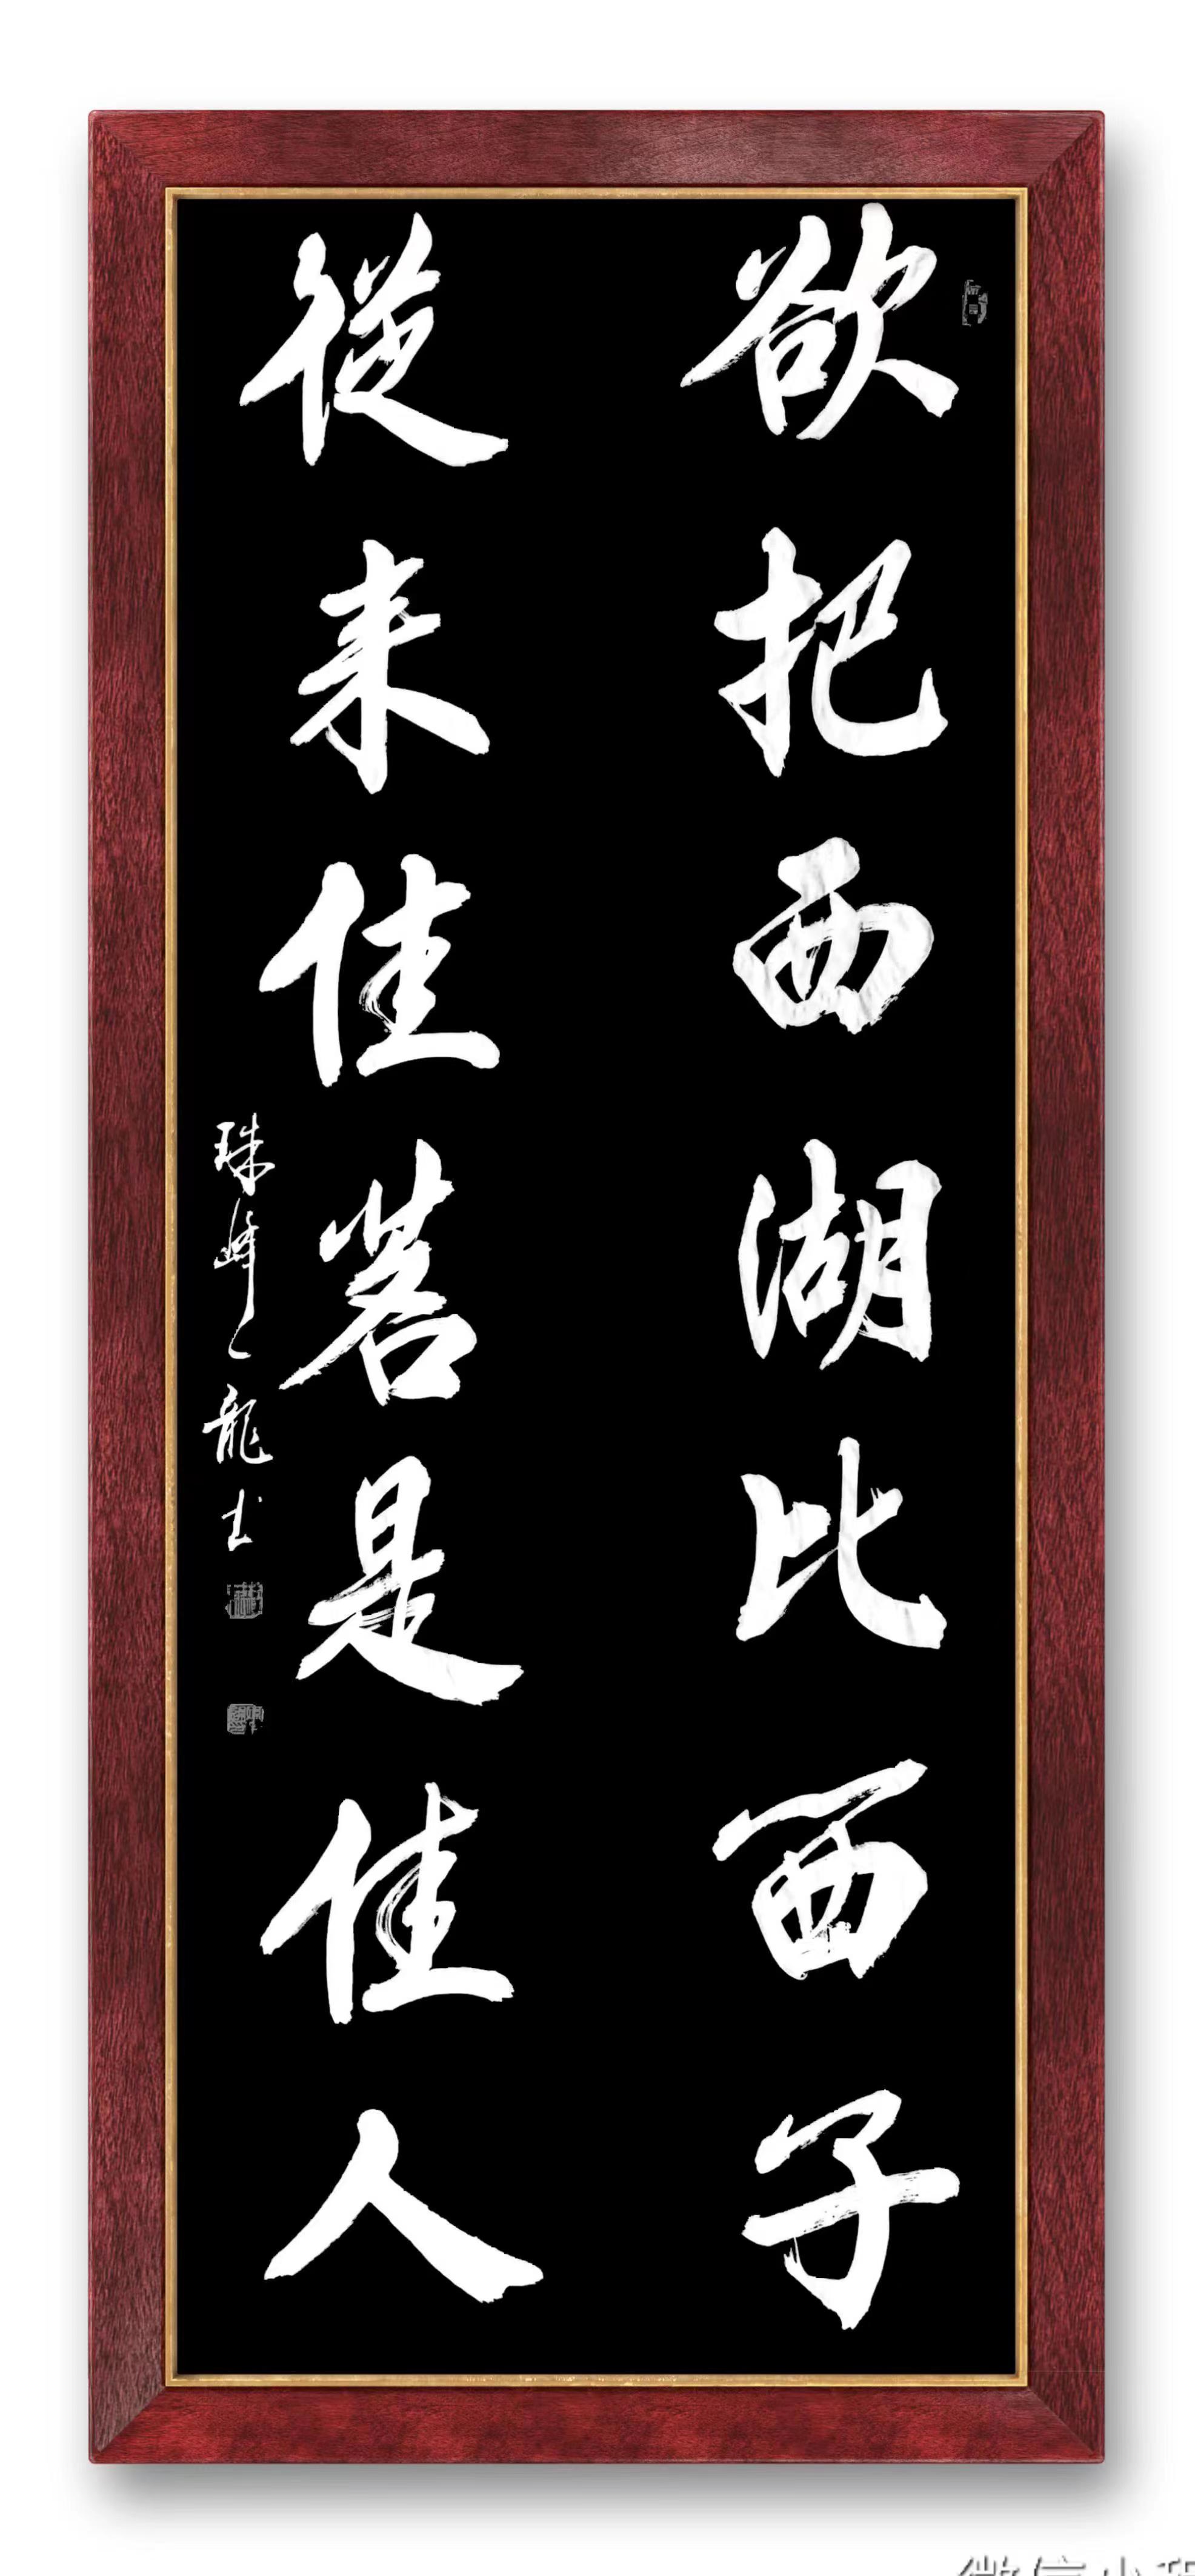 欲把西湖比西子
從来佳茗是佳人
珠峰之龍书
微信小程